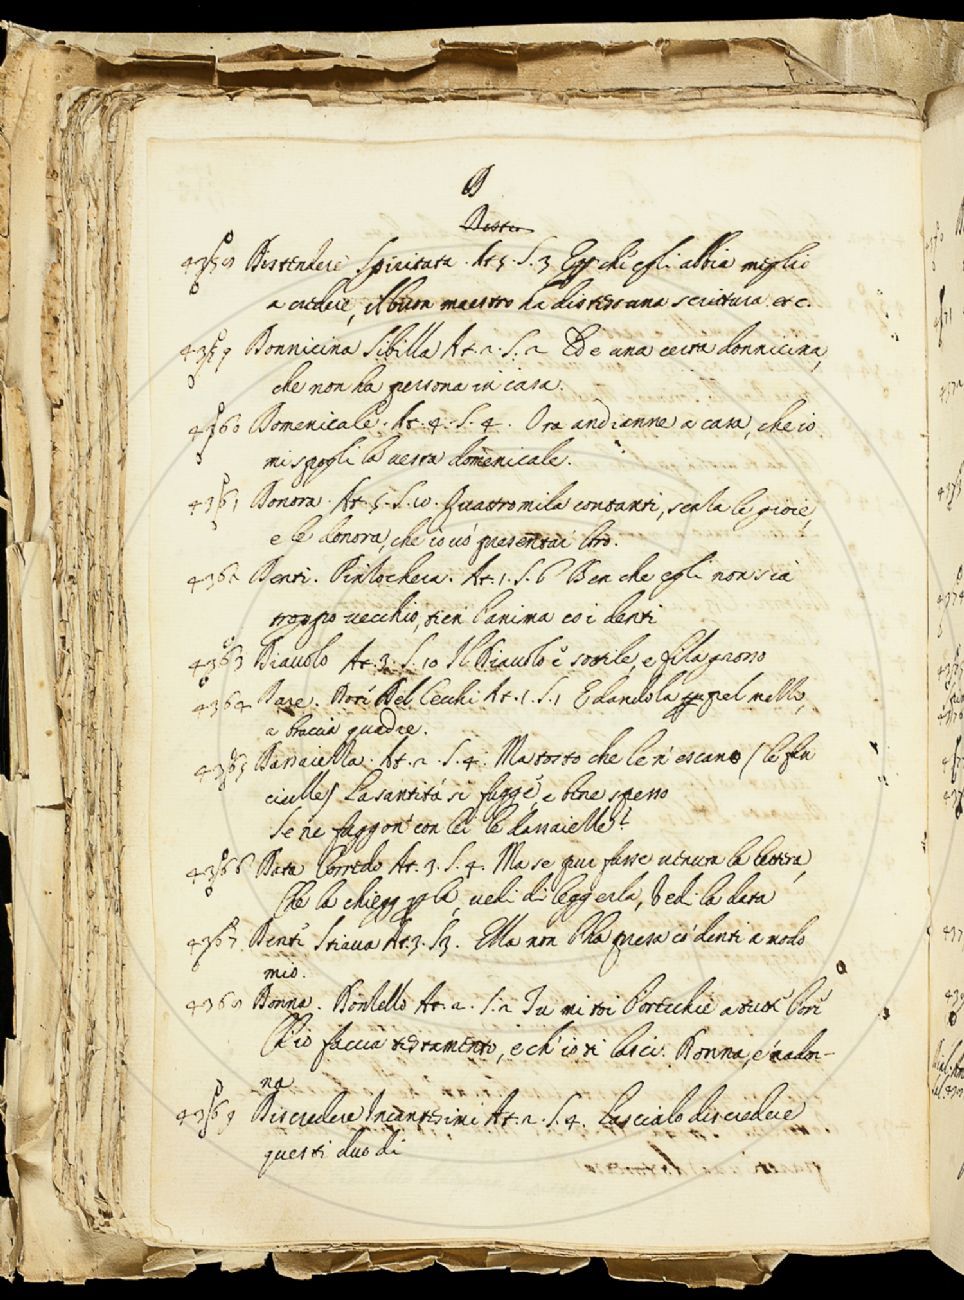 D
4358 Distendere Spiritata. At. 5. S. 3 Egli ch'egli abbia meglio
a cadere, il buon maestro ha distesa una scrittura etc.
4359 Donnicina Sibilla At. 2. S. 2 Ed è una certa donnicina,
che non ha persona in casa.
4360 Domenicale. At. 4. S. 4. Ora andianne a casa, che io
mi spogli la vesta domenicale.
4361 Donora. At. 5. S. 10. Quattromila contanti, senza le gioie,
e le donora, che io vò presentar loro.
4362 Denti. Pinzochera. At. 1. S. 6 Ben che egli non sia
troppo vecchio, tien l'anima co i denti
4363 Diavolo At. 3. S. 10 Il Diavolo è sottile, e fila grosso
4364 Dare. Doti Del Cecchi At. 1. S. 1 E dandola pel mezzo,
a braccia quadre.
4365 Dassaiezza. At. 2. S. 4. Ma tosto che le n'escano (le fan
ciulle) La santità si fugge, e bene spesso
Se ne fuggon' con lei le dassaiezze
4366 Data Corredo At. 3. S. 4. Ma se pur fusse venuta la lettera,
Che la chieggola, vedi di leggerla, Vedi la data
4367 Denti Stiava At. 3. S. 3. Ella non l'ha presa co' denti a modo
mio.
4368 Donna. Donzello At. 2. S. 2 Tu mi toi l'orecchie a tutte l'ore
Ch'io faccia testamento, e ch'io ti lasci. Donna, e mador-
na
4369 Discredere Incantesimi At. 2. S. 4. Lascialo discredere
questi duo dì